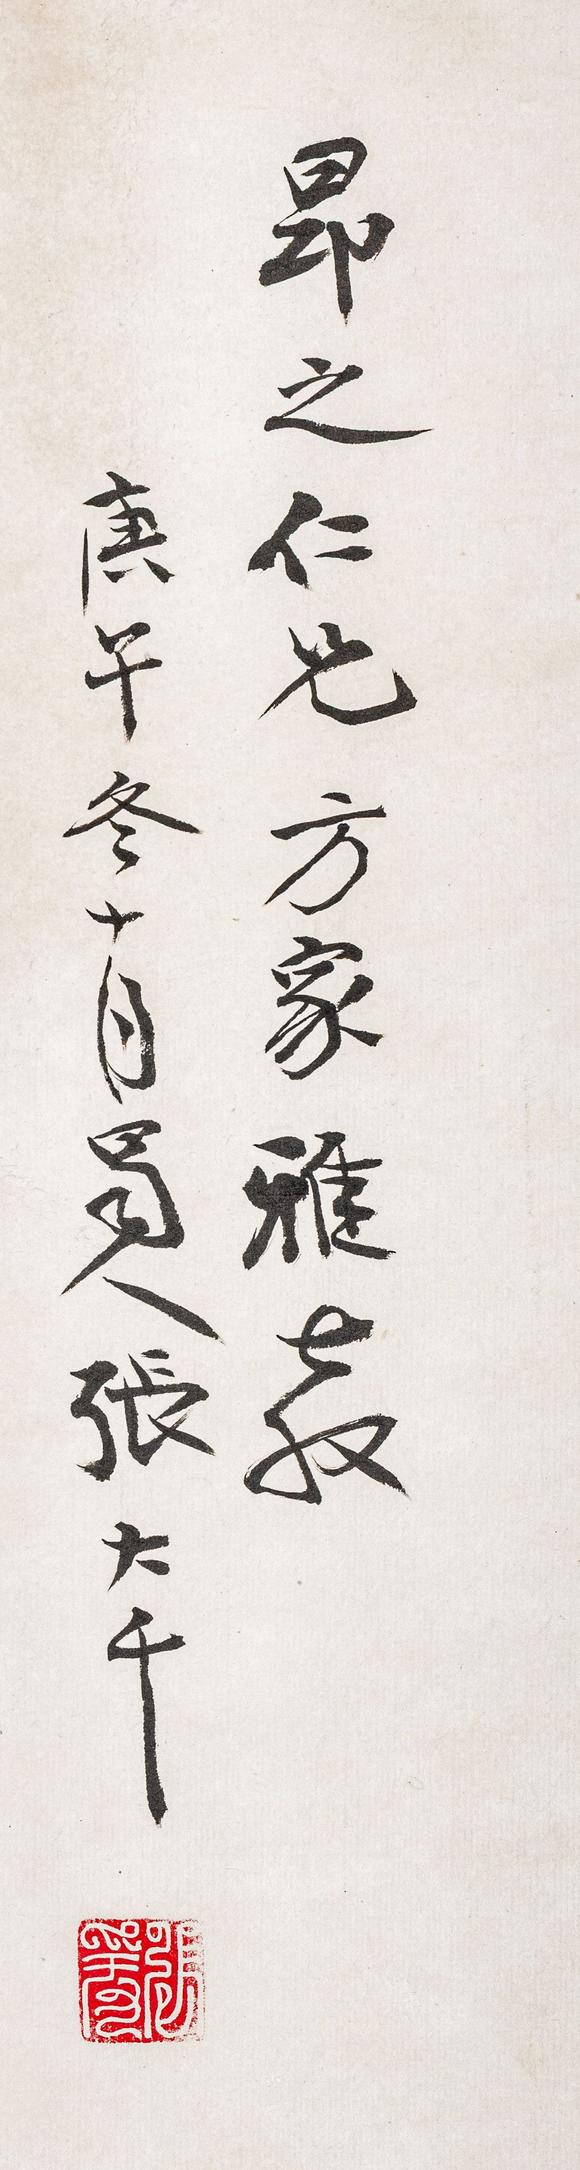 昂之仁兄方家雅教
庚午冬十月蜀人張大千
張爰